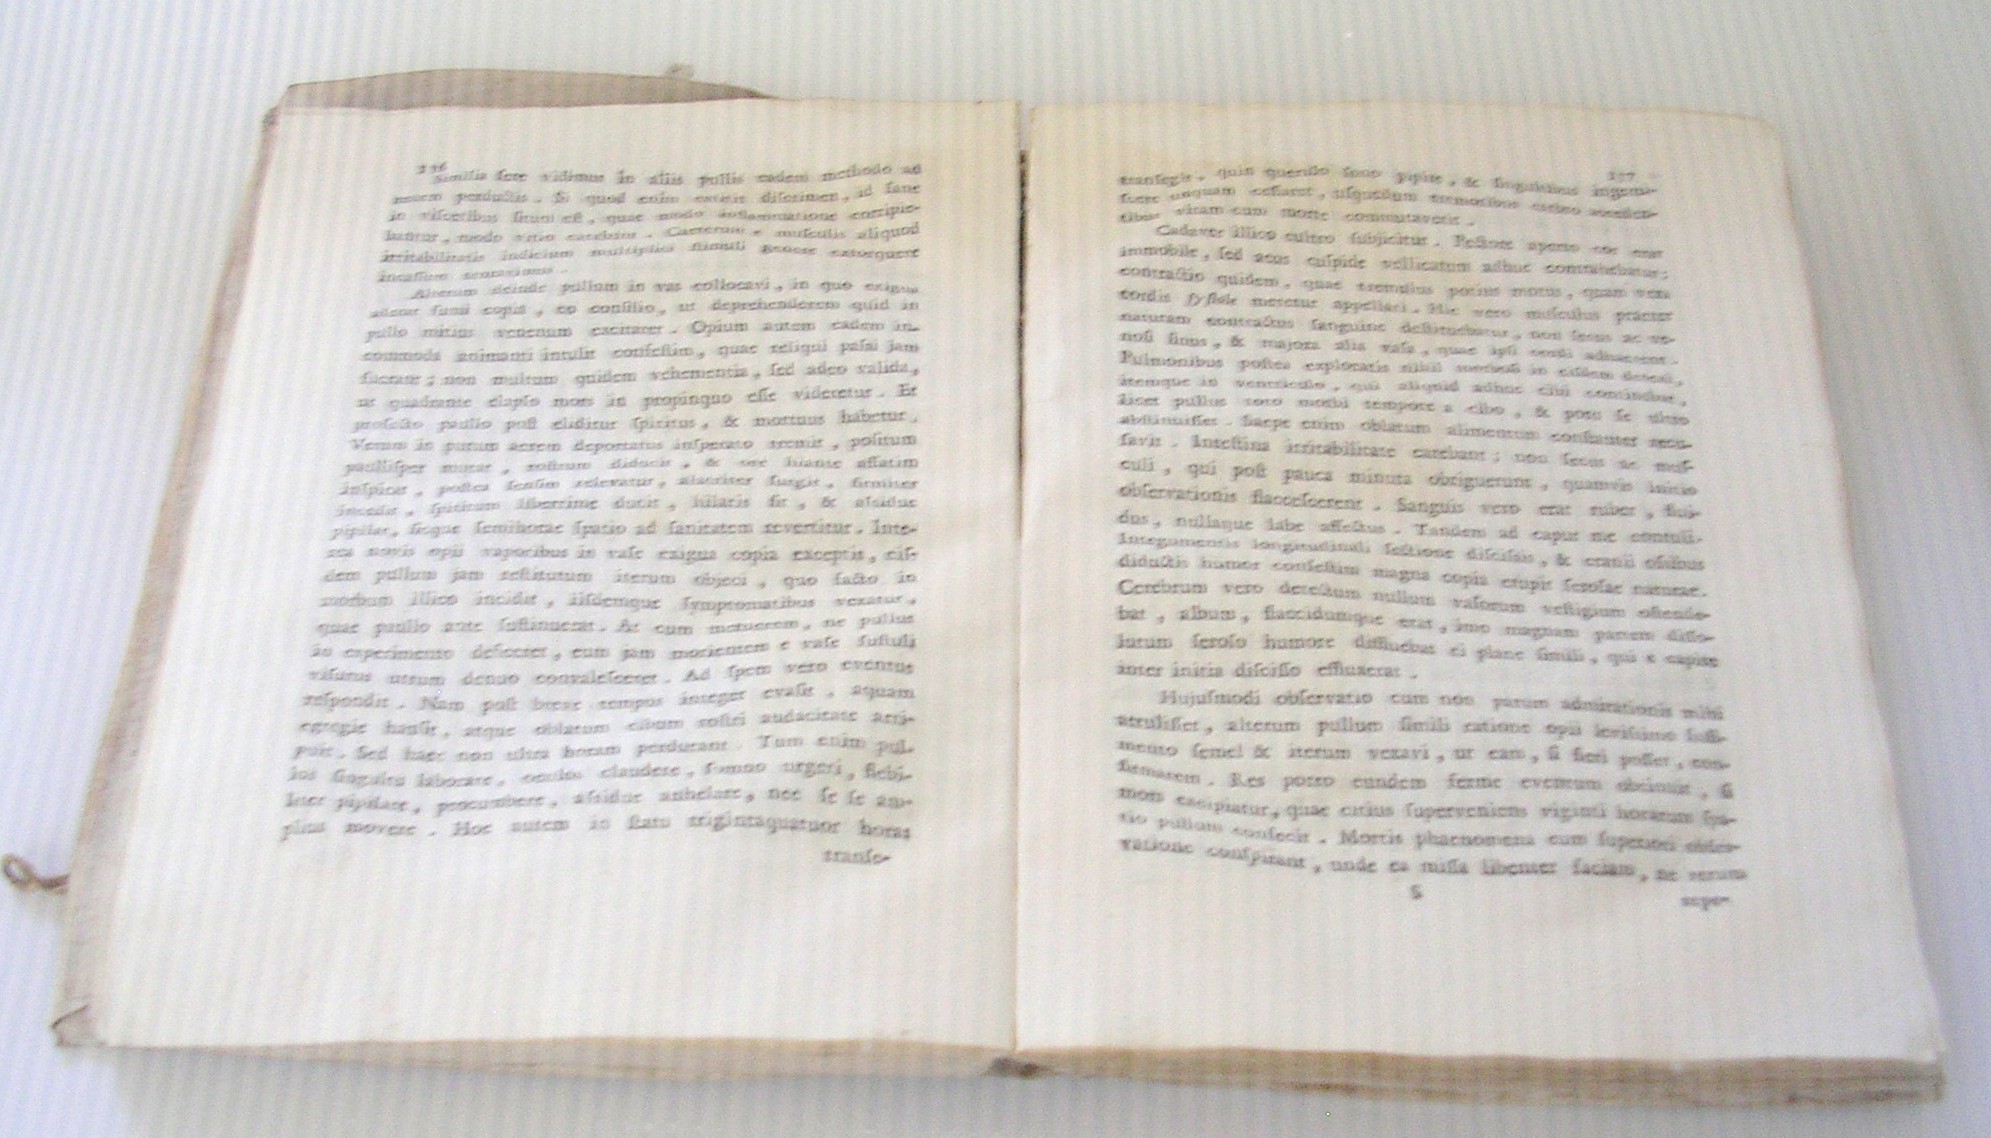 336
Similia fere vidimus in aliis pullis eadem methodo ad
necem perductis. Si quod enim extitit discrimen, id sane
in visceribus situm est, quae modo inflammatione corripie-
bantur, modo vitio carebant. Caeterum e musculis aliquod
irritabilitatis indicium multiplici stimuli genere extorquere
incassum
Alterum deinde pullum in vas collocavi, in quo exigua
aderat fumi copia, eo consilio, ut deprehenderem quid in
pullo mitius venenum excitaret. Opium autem eadem in-
commoda animanti intulit confestim, quae reliqui passi jam
fuerant; non multum quidem vehementia, sed adeo valida,
ut quadrante elapso mors in propinquo esse videretur. Et
profecto paullo post eliditur spiritus, & mortuus habetur.
Verum in purum aerem deportatus insperato tremit, positum
paullisper mutat, rostrum diducit, & ore hiante affatim
inspirat, postea sensim relevatur, alacriter surgit, firmiter
incedit, spiritum liberrime ducit, hilaris fit, & assidue
pipilat, sicque semihorae spatio ad sanitatem revertitur. Inte-
rea novis opii vaporibus in vase exigua copia exceptis, eis-
dem pullum jam restitutum iterum objeci, quo facto in
morbum illico incidit, iisdemque symptomatibus vexatur,
quae paullo ante sustinuerat. At cum metuerem, ne pullus
in experimento deficeret, eum jam morientem e vase sustuli
visurus utrum denuo convalesceret. Ad spem vero eventus
respondit. Nam post breve tempus integer evasit, aquam
egregie hausit, atque oblatum cibum rostri audacitate arri-
puit. Sed haec non ultra horam perdurant. Tum enim pul-
lus singultu laborare, oculos claudere, somno urgeri, flebi-
liter pipilare, procumbere, assidue anhelare, nec se se am-
plius movere. Hoc autem in statu trigintaquatuor horas
transe-
337
transegit, quin querulo sono pipire, & singultibus ingemi-
scere unquam cessaret, usquedum tremoribus
vitam cum morte commutaverit.
Cadaver illico cultro subjicitur. Pectore aperto cor erat
immobile, sed acus cuspide vellicatum adhuc contrahebatur;
contractio quidem, quae tremulus potius motus, quam vera
cordis systole meretur appellari. Hic vero musculus praeter
naturam contractus sanguine destituebatur, non secus ac ve-
nosi sinus, & majora alia vasa, quae ipsi cordi adhaerent.
Pulmonibus postea exploratis nihil morbosi in eisdem detexi,
itemque in ventriculo, qui aliquid adhuc cibi continebat,
licet pullus toto morbi tempore a cibo, & potu se ultro
abstinuisset. Saepe enim oblatum alimentum constanter recu-
savit. Intestina irritabilitate carebant; non secus ac mus-
culi, qui post pauca minuta obriguerunt, quamvis initio
observationis flaccescerent. Sanguis vero erat ruber, flui-
dus, nullaque labe affectus. Tandem ad caput me contuli.
Integumentis longitudinali sectione discissis, & cranii ossibus
diductis humor confestim magna copia erupit serosae naturae.
Cerebrum vero detectum nullum vasorum vestigium ostende-
bat, album, flaccidumque erat, imo magnam partem disso-
lutum seroso humore diffluebat ei plane simili, qui e capite
inter initia discisso effluxerat.
Hujusmodi observatio cum non parum admirationis mihi
attulisset, alterum pullum simili ratione opii levissimo suffi-
mento semel & iterum vexavi, ut eam, si fieri posset, con-
firmarem. Res porro eundem ferme eventum obtinuit, si
mors excipiatur, quae citius superveniens viginti horarum spa-
tio pullum confecit. Mortis phaenomena cum superiori obser-
vatione conspirant, unde ea missa libenter faciam, ne rerum
S
repe-